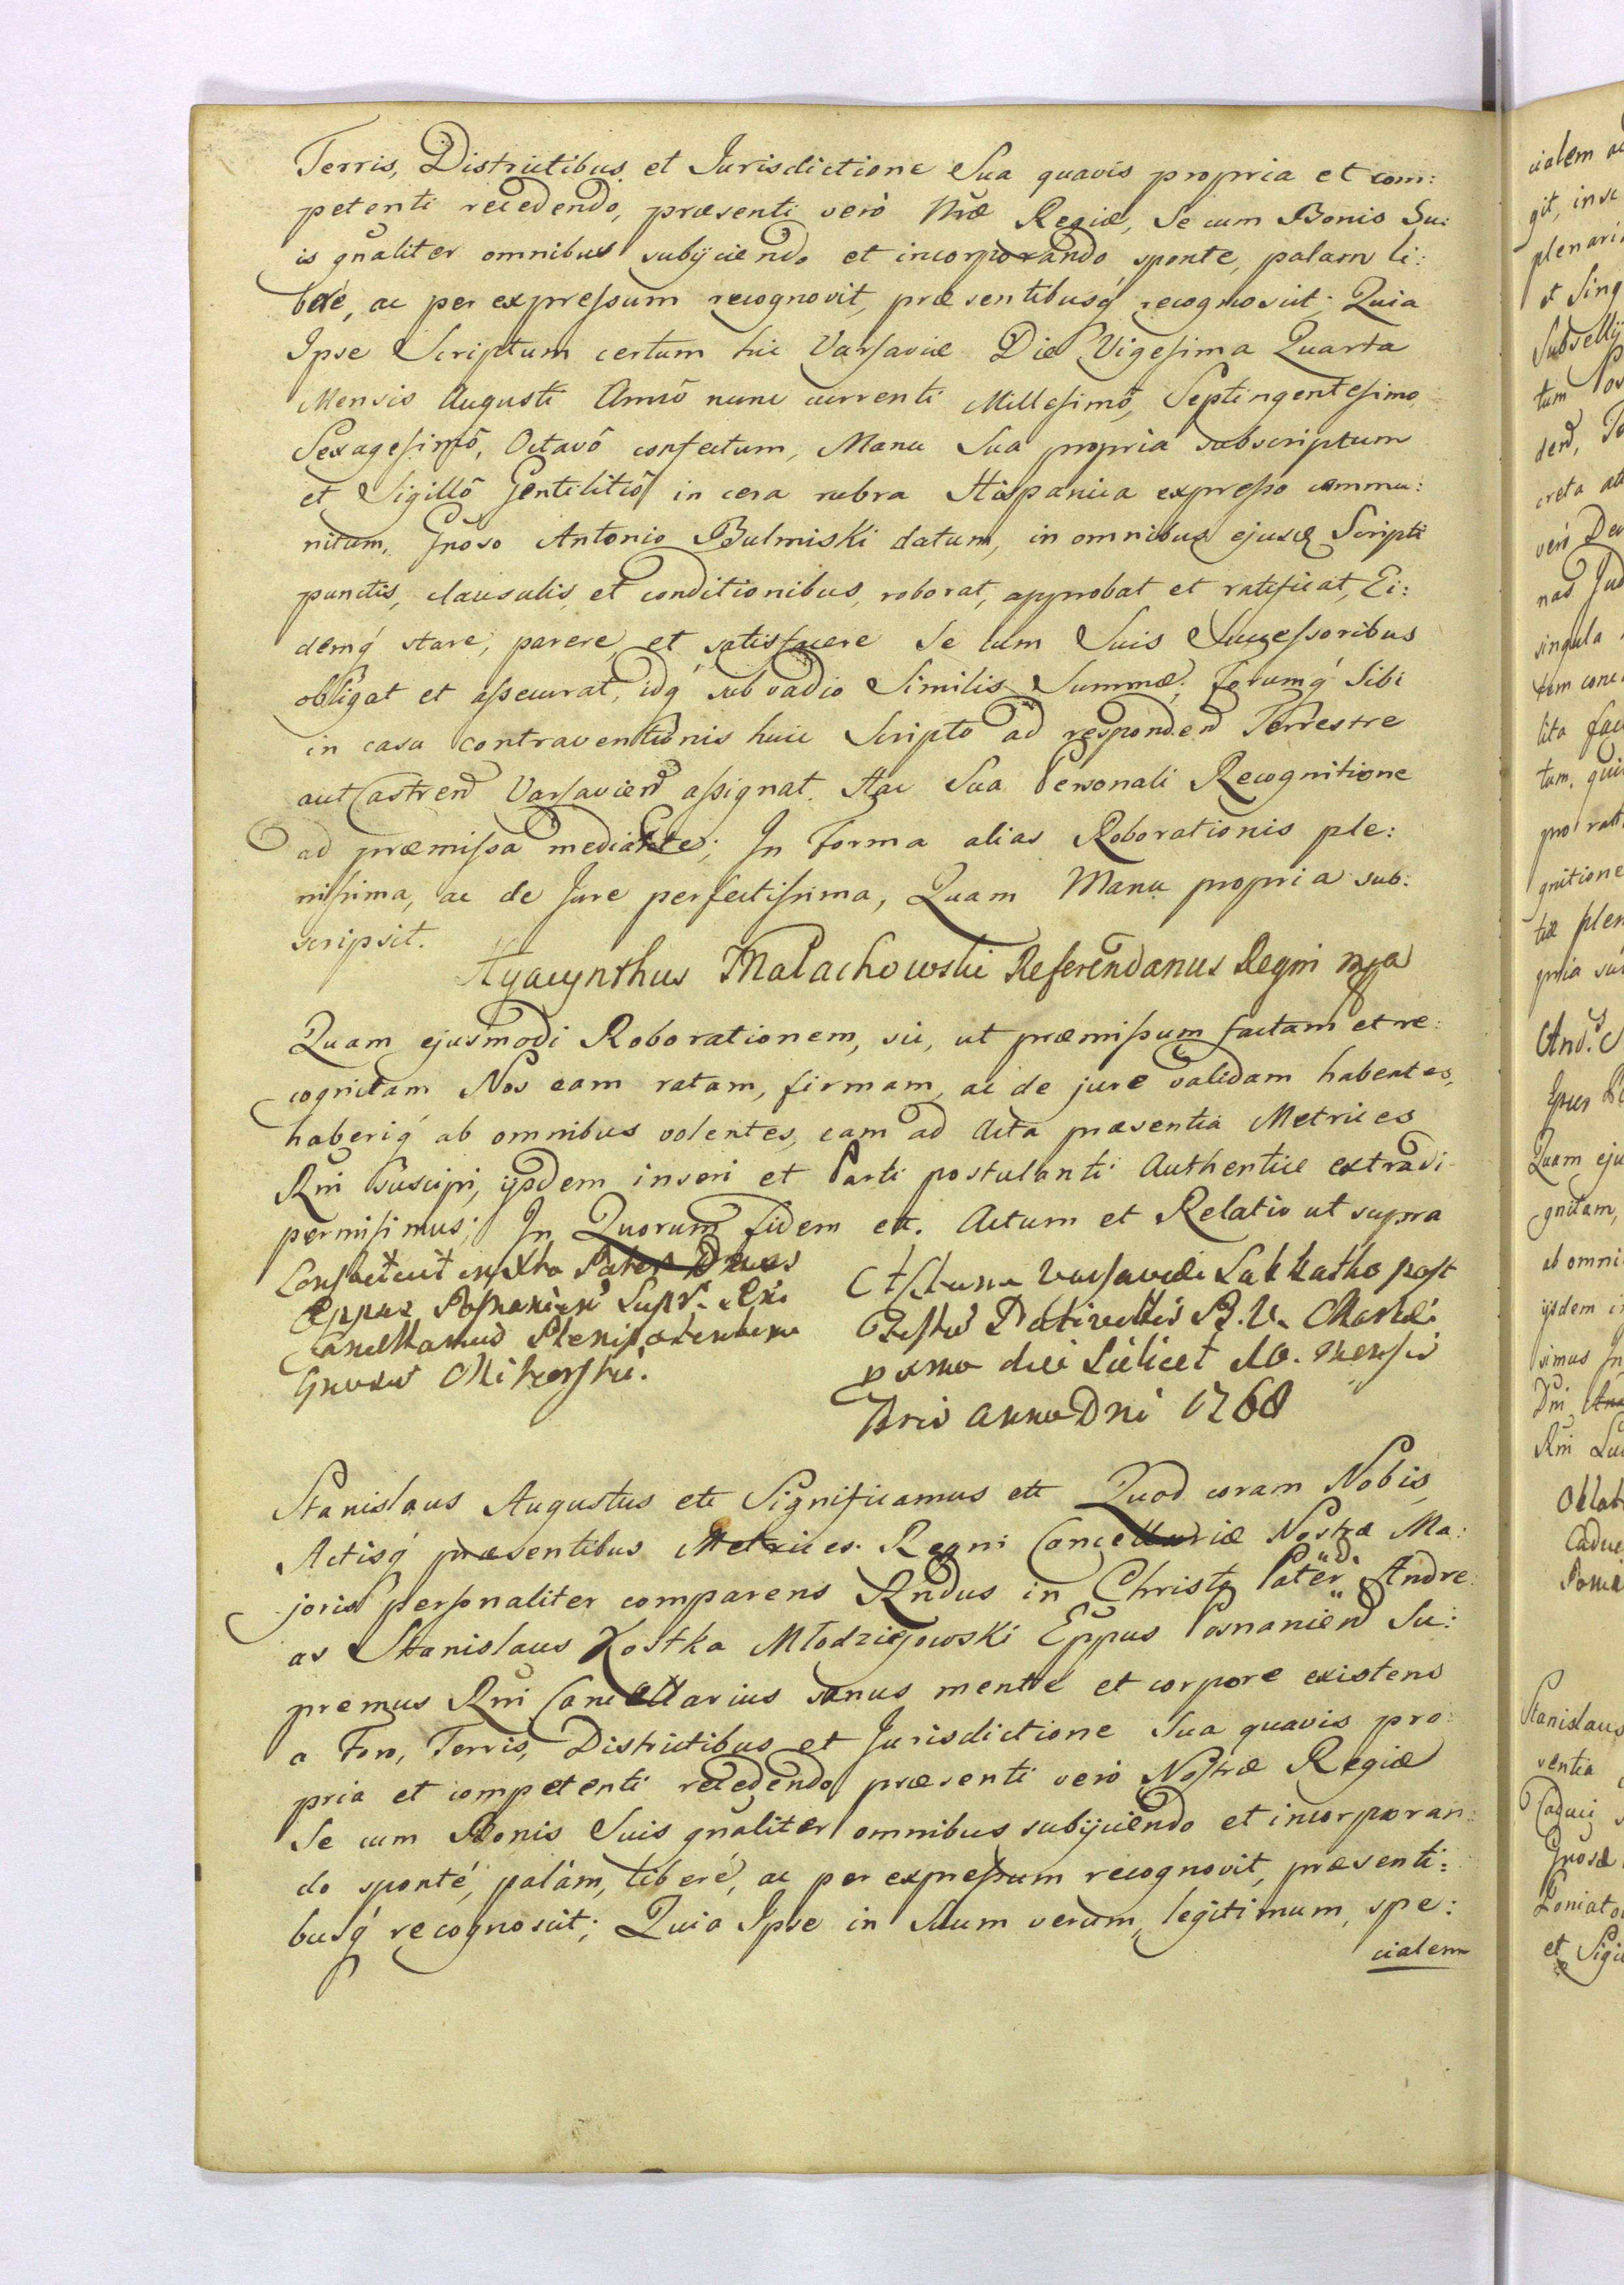 Terris, Districtibus et Jurisdictione Sua quavis propria et com:
petenti recedendo, præsenti verò Nræ Regiæ, Se cum Bonis Su:
is gnaliter omnibus subijciendo et incorporando sponte, palam li:
bere, ac per expreſsum recognovit, præsentibusq́ recognoscit; Quia
Ipse Scriptum certum hic Varſaviæ Die Vigeſima Quarta
Mensis Augusti Annô nunc currenti Milleſimô, Septingenteſimo
Sexageſimô, Octavô confectum, Manu Sua propria subscriptum
et Sigillô Gentilitiô in cera rubra Hispanica expreſso commu:
nitum, Gnoso Antonio Bulminski datum, in omnibus ejusd Scripti
punctis, clausulis et conditionibus, roborat, approbat et ratificat, Ei:
demq́ stare, parere et satisfacere Se cum Suis Succeſsoribus
obligat et aſsecurat, idq́ sub vadio Similis Summæ; Forumq́ Sibi
in casu contraventionis huic Scripto ad respondend Terrestre
aut Castrens Varſaviens aſsignat. Hac Sua Personali Recognitione
ad præmiſsa mediante; In Forma alias Roborationis ple:
niſsima, ac de Jure perfectiſsima, Quam Manu propria sub:
scripsit.
Hyacynthus Małachowski Referendarius Regni mpa
Quam ejusmodi Roborationem, sic, ut præmiſsum factam et re:
cognitam Nos eam ratam, firmam, ac de jure validam habentes,
haberiq́ ab omnibus volentes, eam ad Acta præsentia Metrices
Rni suscipi, ijsdem inseri et Parti postulanti Authentice extradi
permiſimus; In Quorum fidem ett. Actum et Relatio ut supra
Constituit in Xto Pater
Eppus Poſnanien Supr. Rni
Cancellarius Plenipotentem
Gnosum
Actum Varſaviæ Sabbatho post
Festum Nativitatis B. V. Mariæ
die Scilicet 10. Mensis
7bris Anno Dni 1768
Stanislaus Augustus ett Significamus ett Quod coram Nobis
Actisq́ præsentibus Metrices Regni Cancellariæ Nostræ Ma:
joris perſonaliter comparens Rndus in Christo Pater D. Andre:
as Stanislaus Kostka Młodziejowski Eppus Posnaniens Su:
premus Rni Cancellarius sanus mente et corpore existens
a Foro, Terris, Districtibus et Jurisdictione Sua quavis pro:
pria et competenti recedendo præsenti verò Nostræ Regiæ
Se cum Bonis Suis gnaliter omnibus subijciendo et incorporan:
do sponté, palám, liberé, ac per expreſsum recognovit, præsenti:
busq́ recognoscit; Quia Ipse in Suum verum, legitimum, spe:
cialem